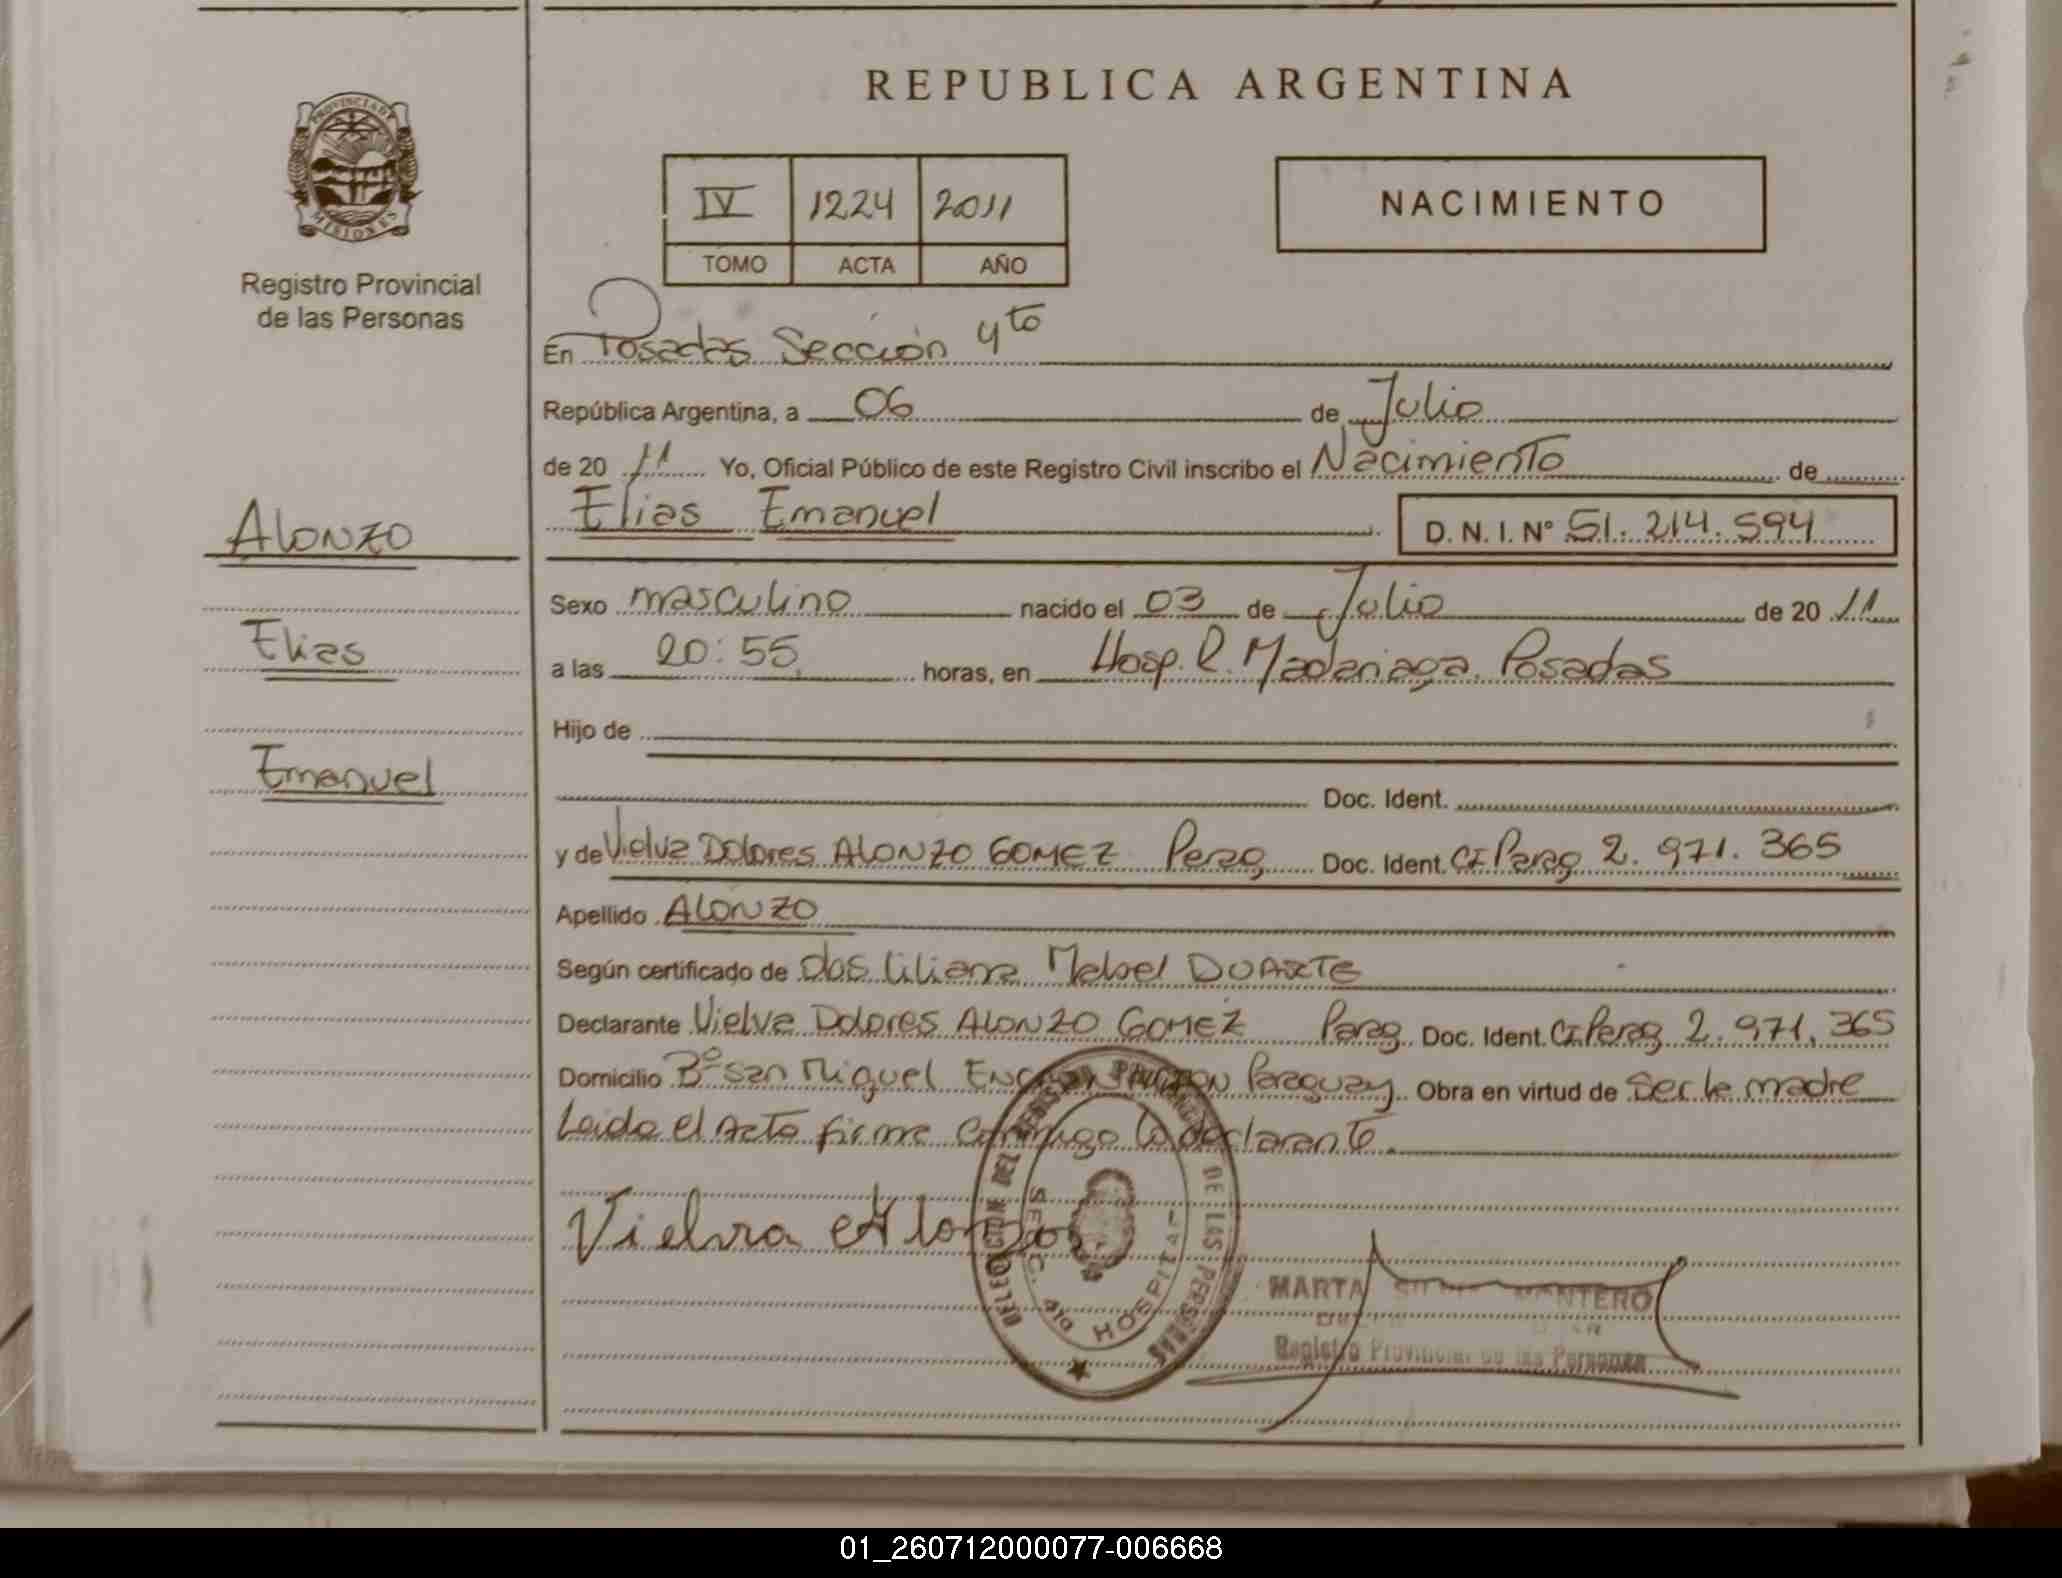 REPUBLICA ARGENTINA
PROVINCIA DE MISIONES
Registro Provincial
de las Personas
IV 1224 2011
TOMO ACTA AÑO
NACIMIENTO
En Posadas Sección 4to
República Argentina, a 06 de Julio
de 20 11 Yo, Oficial Público de este Registro Civil inscribo el Nacimiento de
Elias Emanuel D. N. I. N° 51. 214. 594
ALONZO
Elias
Emanuel
Sexo masculino nacido el 03 de Julio de 20 11
a las 20:55 horas, en Hosp. R. Madariaga. Posadas
Hijo de
Doc. Ident.
y de Vielva Dolores ALONZO GOMEZ Parag Doc. Ident. CI Parag 2. 971. 365
Apellido ALONZO
Según certificado de Obs Liliana Mabel DUARTE
Declarante Vielva Dolores ALONZO GOMEZ Parag Doc. Ident. CI Parag 2. 971. 365
Domicilio B° San Miguel Paraguay Obra en virtud de Ser la madre
Leida el Acta firma conmigo la declarante.
Vielva Alonzo
DELEGACION DEL DE LAS PERSONAS
SECC. 4ta HOSPITAL
MARTA MONTERO
Registro Provincial de las Personas
01_260712000077-006668